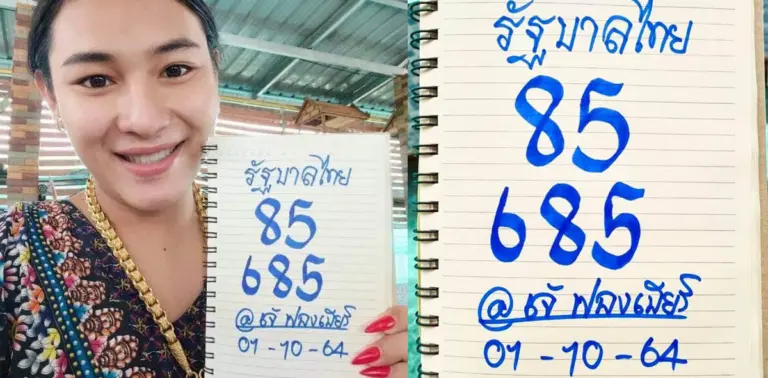 รัฐบาลไทย
85
685
@เจ๊ฟองเบียร์
01-10-64
รัฐบาลไทย
85
685
@เจ๊ ฟองเบียร์
01-10-64